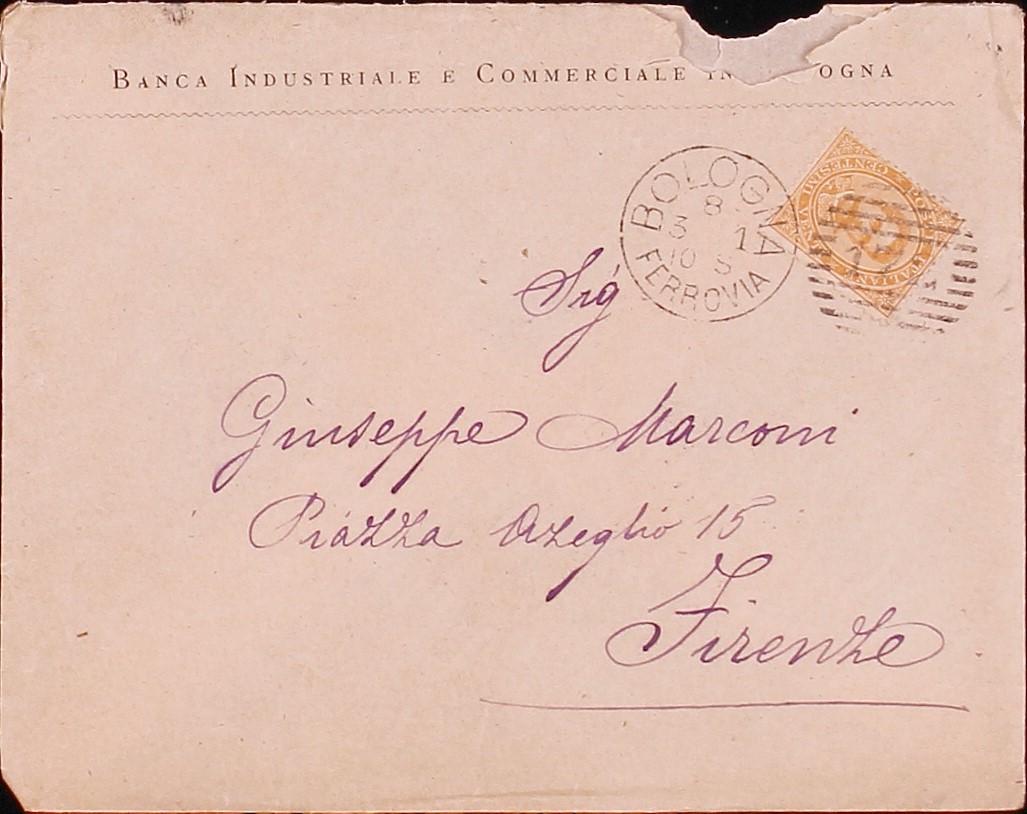 BANCA INDUSTRIALE E COMMERCIALE IN OGNA
BOLOGNA
8
3 1
10 S
FERROVIA
Sig
Giuseppe Marconi
Piazza Azeglio 15
Firenze